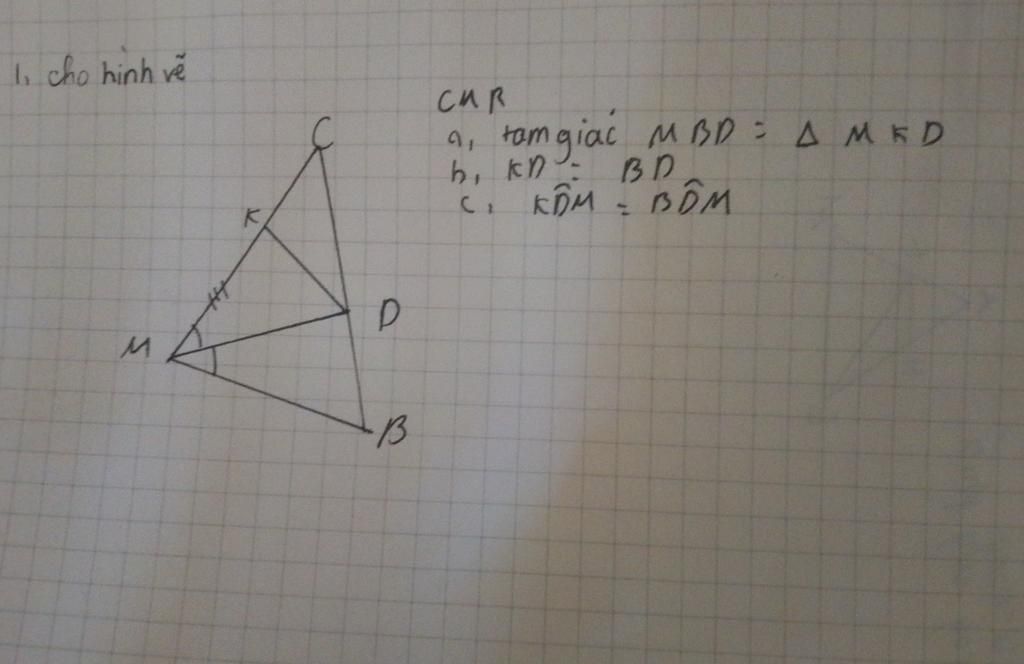 1, cho hình vẽ
CMR
a, tam giác MBD = Δ MKD
b, KD = BD
c, KD̂M = BD̂M
C
K
D
M
B